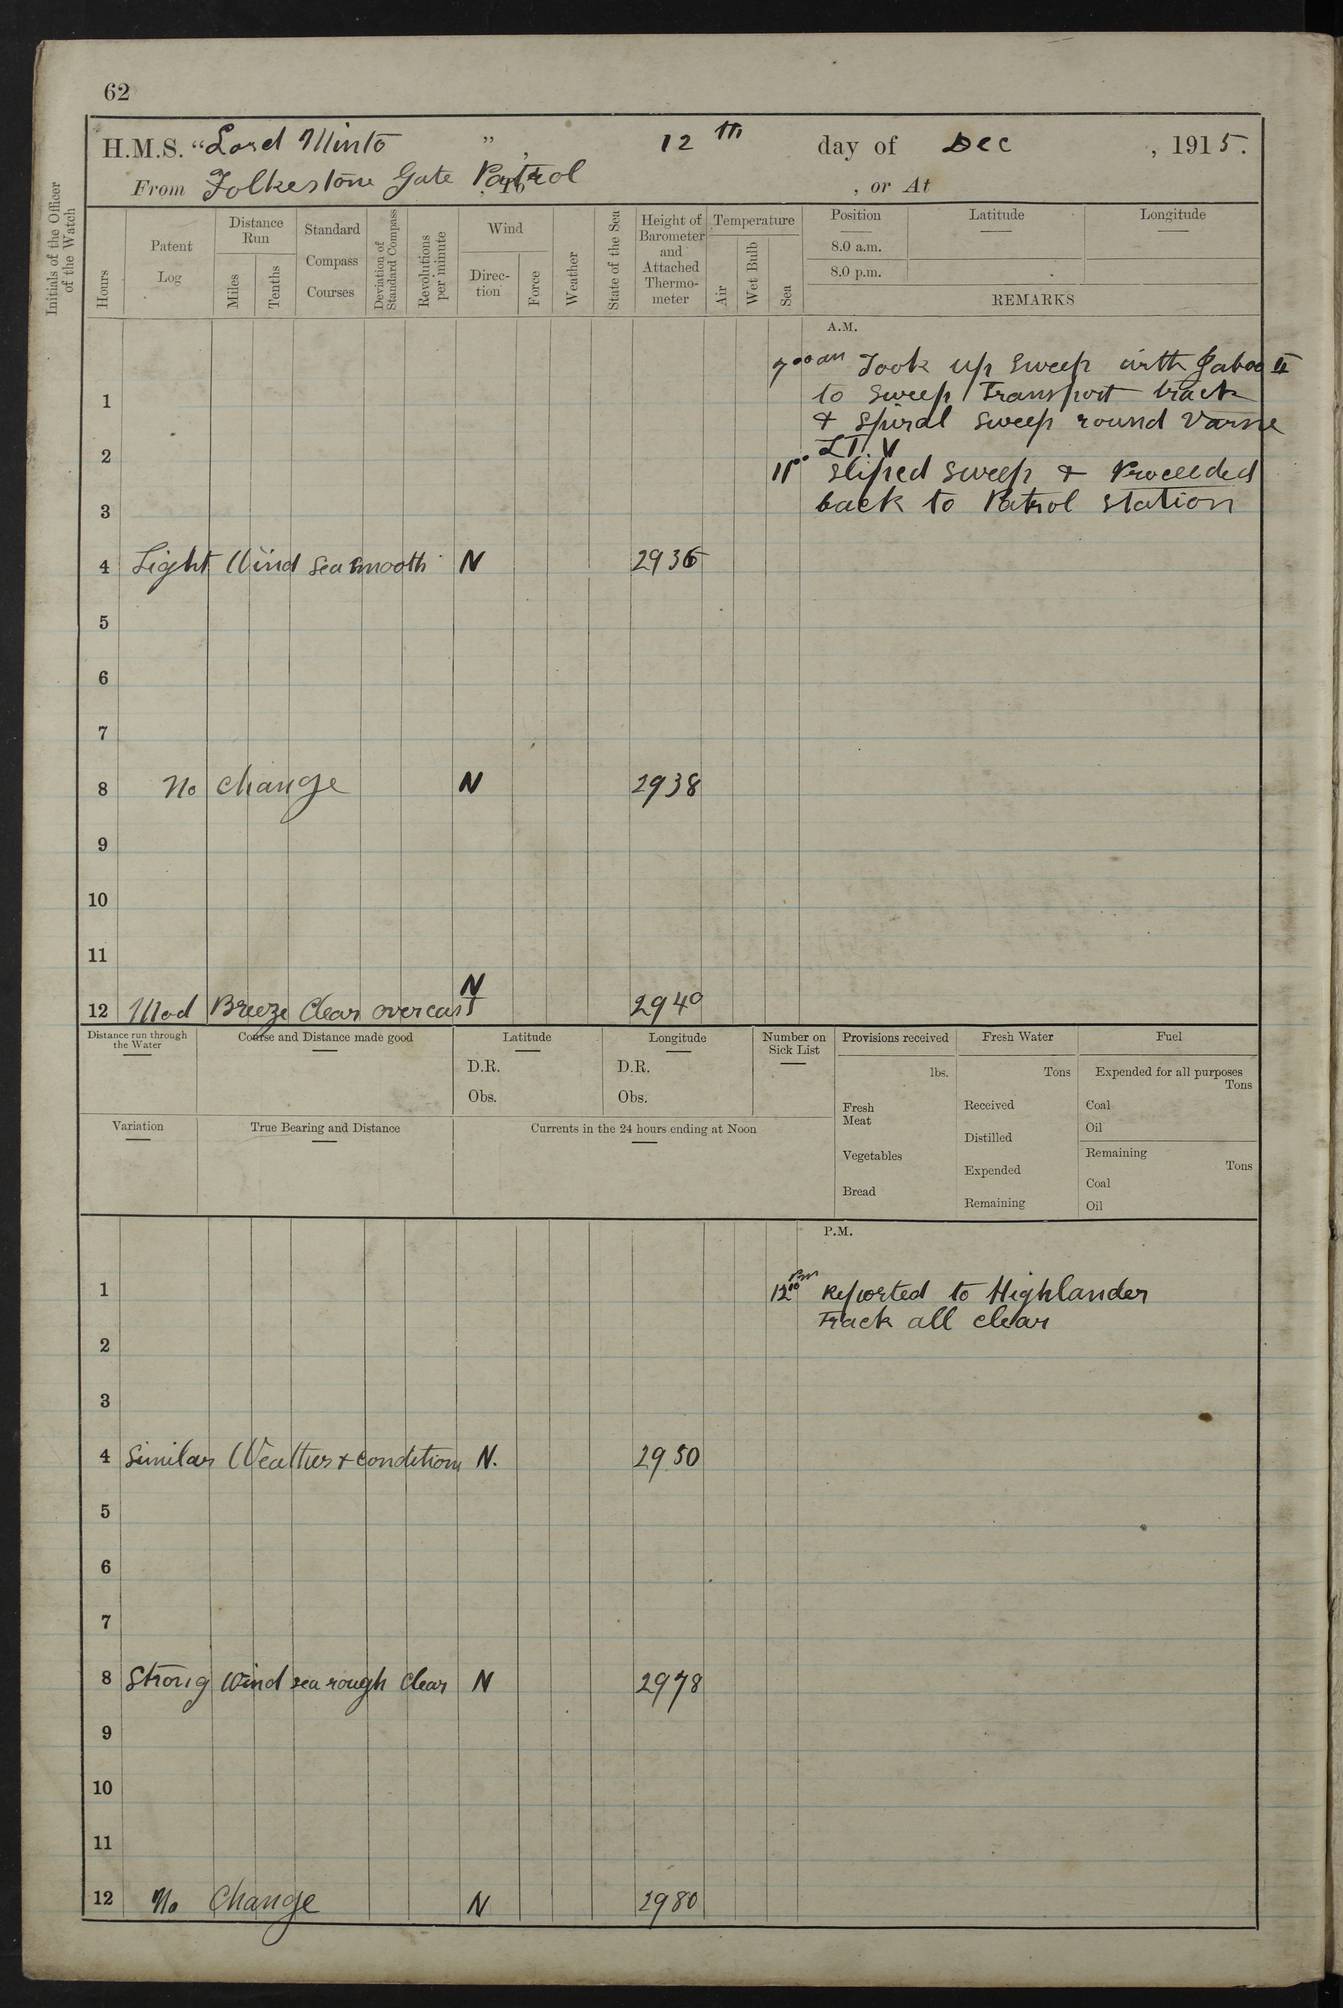 62
H.M.S. “Lord Minto ”, 12th day of Dec , 1915.
From Folkestone Gate Patrol , or At
Initials of the Officer of the Watch
Hours
Patent Log
Distance Run
Miles
Tenths
Standard Compass Courses
Deviation of Standard Compass
Revolutions per minute
Wind
Direc-tion
Force
Weather
State of the Sea
Height of Barometer and Attached Thermo-meter
Temperature
Air
Wet Bulb
Sea
Position Latitude Longitude
8.0 a.m.
8.0 p.m.
REMARKS
A.M.
7 00 am Took up sweep with II
to sweep Transport track
1
& spiral sweep round Varne
LT. V
2
11 00 sliped sweep & Proceeded
back to Patrol station
3
4 Light Wind Sea Smooth N 2936
5
6
7
8 No change N 2938
9
10
11
12 Mod Breeze Clear overcast N 2940
Distance run through the Water
Course and Distance made good
Latitude
D.R.
Obs.
Longitude
D.R.
Obs.
Number on Sick List
Provisions received
lbs.
Fresh Meat
Vegetables
Bread
Fresh Water
Tons
Received
Distilled
Expended
Remaining
Fuel
Expended for all purposes
Tons
Coal
Oil
Remaining
Tons
Coal
Oil
Variation
True Bearing and Distance
Currents in the 24 hours ending at Noon
P.M.
1 12 10 Pm Reported to Highlander
Track all clear
2
3
4 Similar Weather & conditions N. 2950
5
6
7
8 Strong Wind sea rough Clear N 2978
9
10
11
12 No Change N 2980